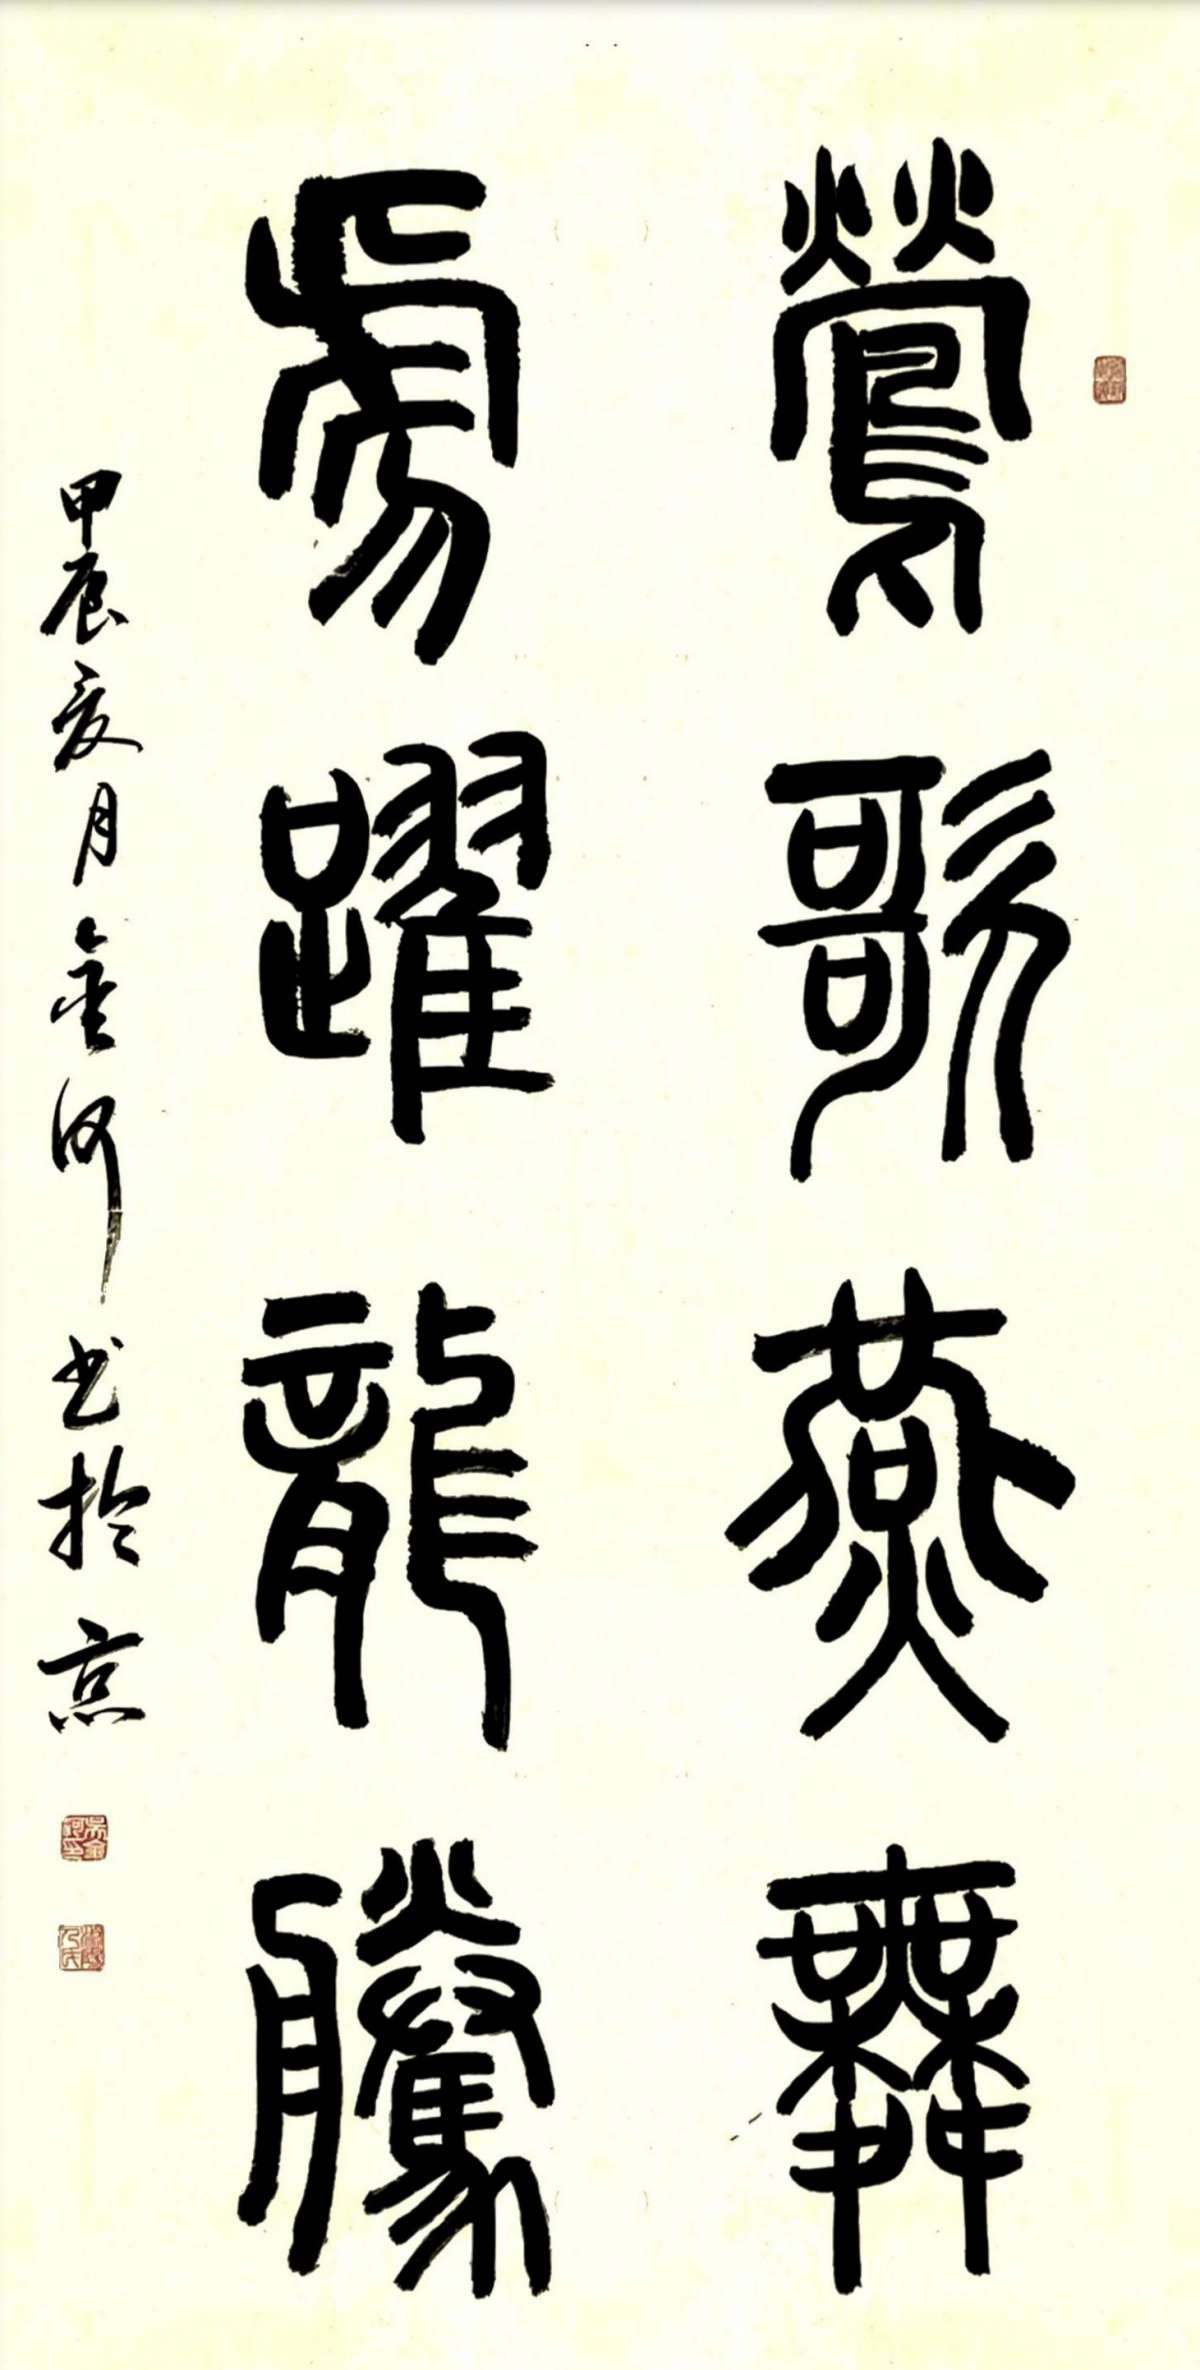 鶯歌燕舞
虎躍龍騰
甲辰亥月金河书於京